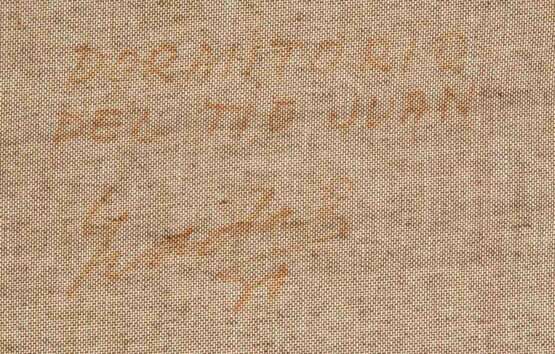 DORMITORIO
DEL TIO JUAN